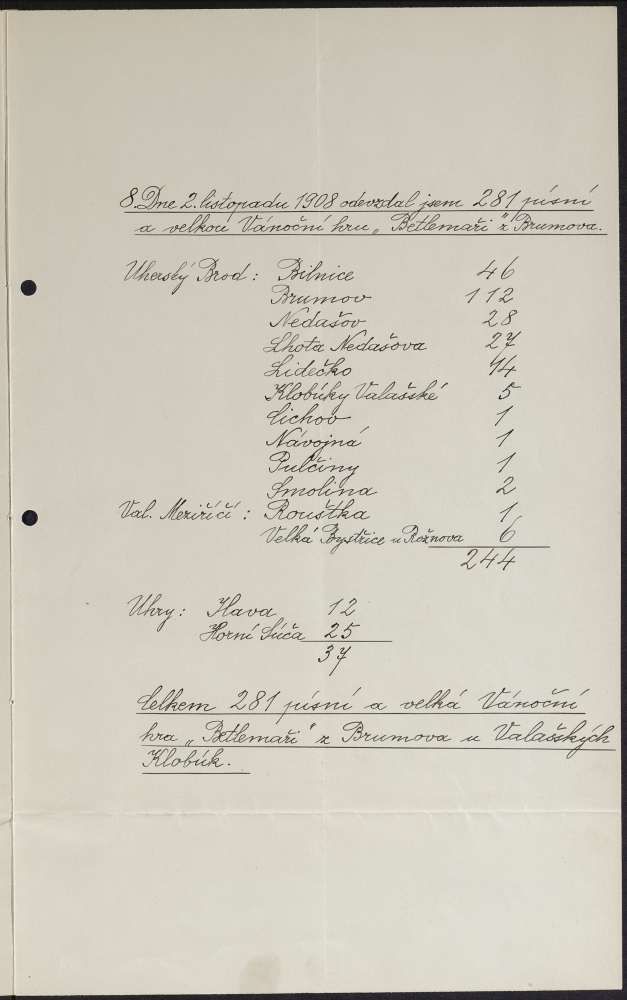 8. Dne 2. listopadu 1908 odevzdal jsem 281 písní
a velkou Vánoční hru „Betlemaři" z Brumova.
Uherský Brod: Bilnice 46
Brumov 112
Nedašov 28
Lhota Nedašova 27
Lidečko 14
Klobúky Valašské 5
Lichov 1
Návojná 1
Pulčiny 1
Smolina 2
Val. Meziříčí: Roušťka 1
Velká Bystřice u Rožnova 6
244
Uhry: Ilava 12
Horní Súča 25
37
Celkem 281 písní a velká Vánoční
hra „Betlemaři" z Brumova u Valašských
Klobúk.